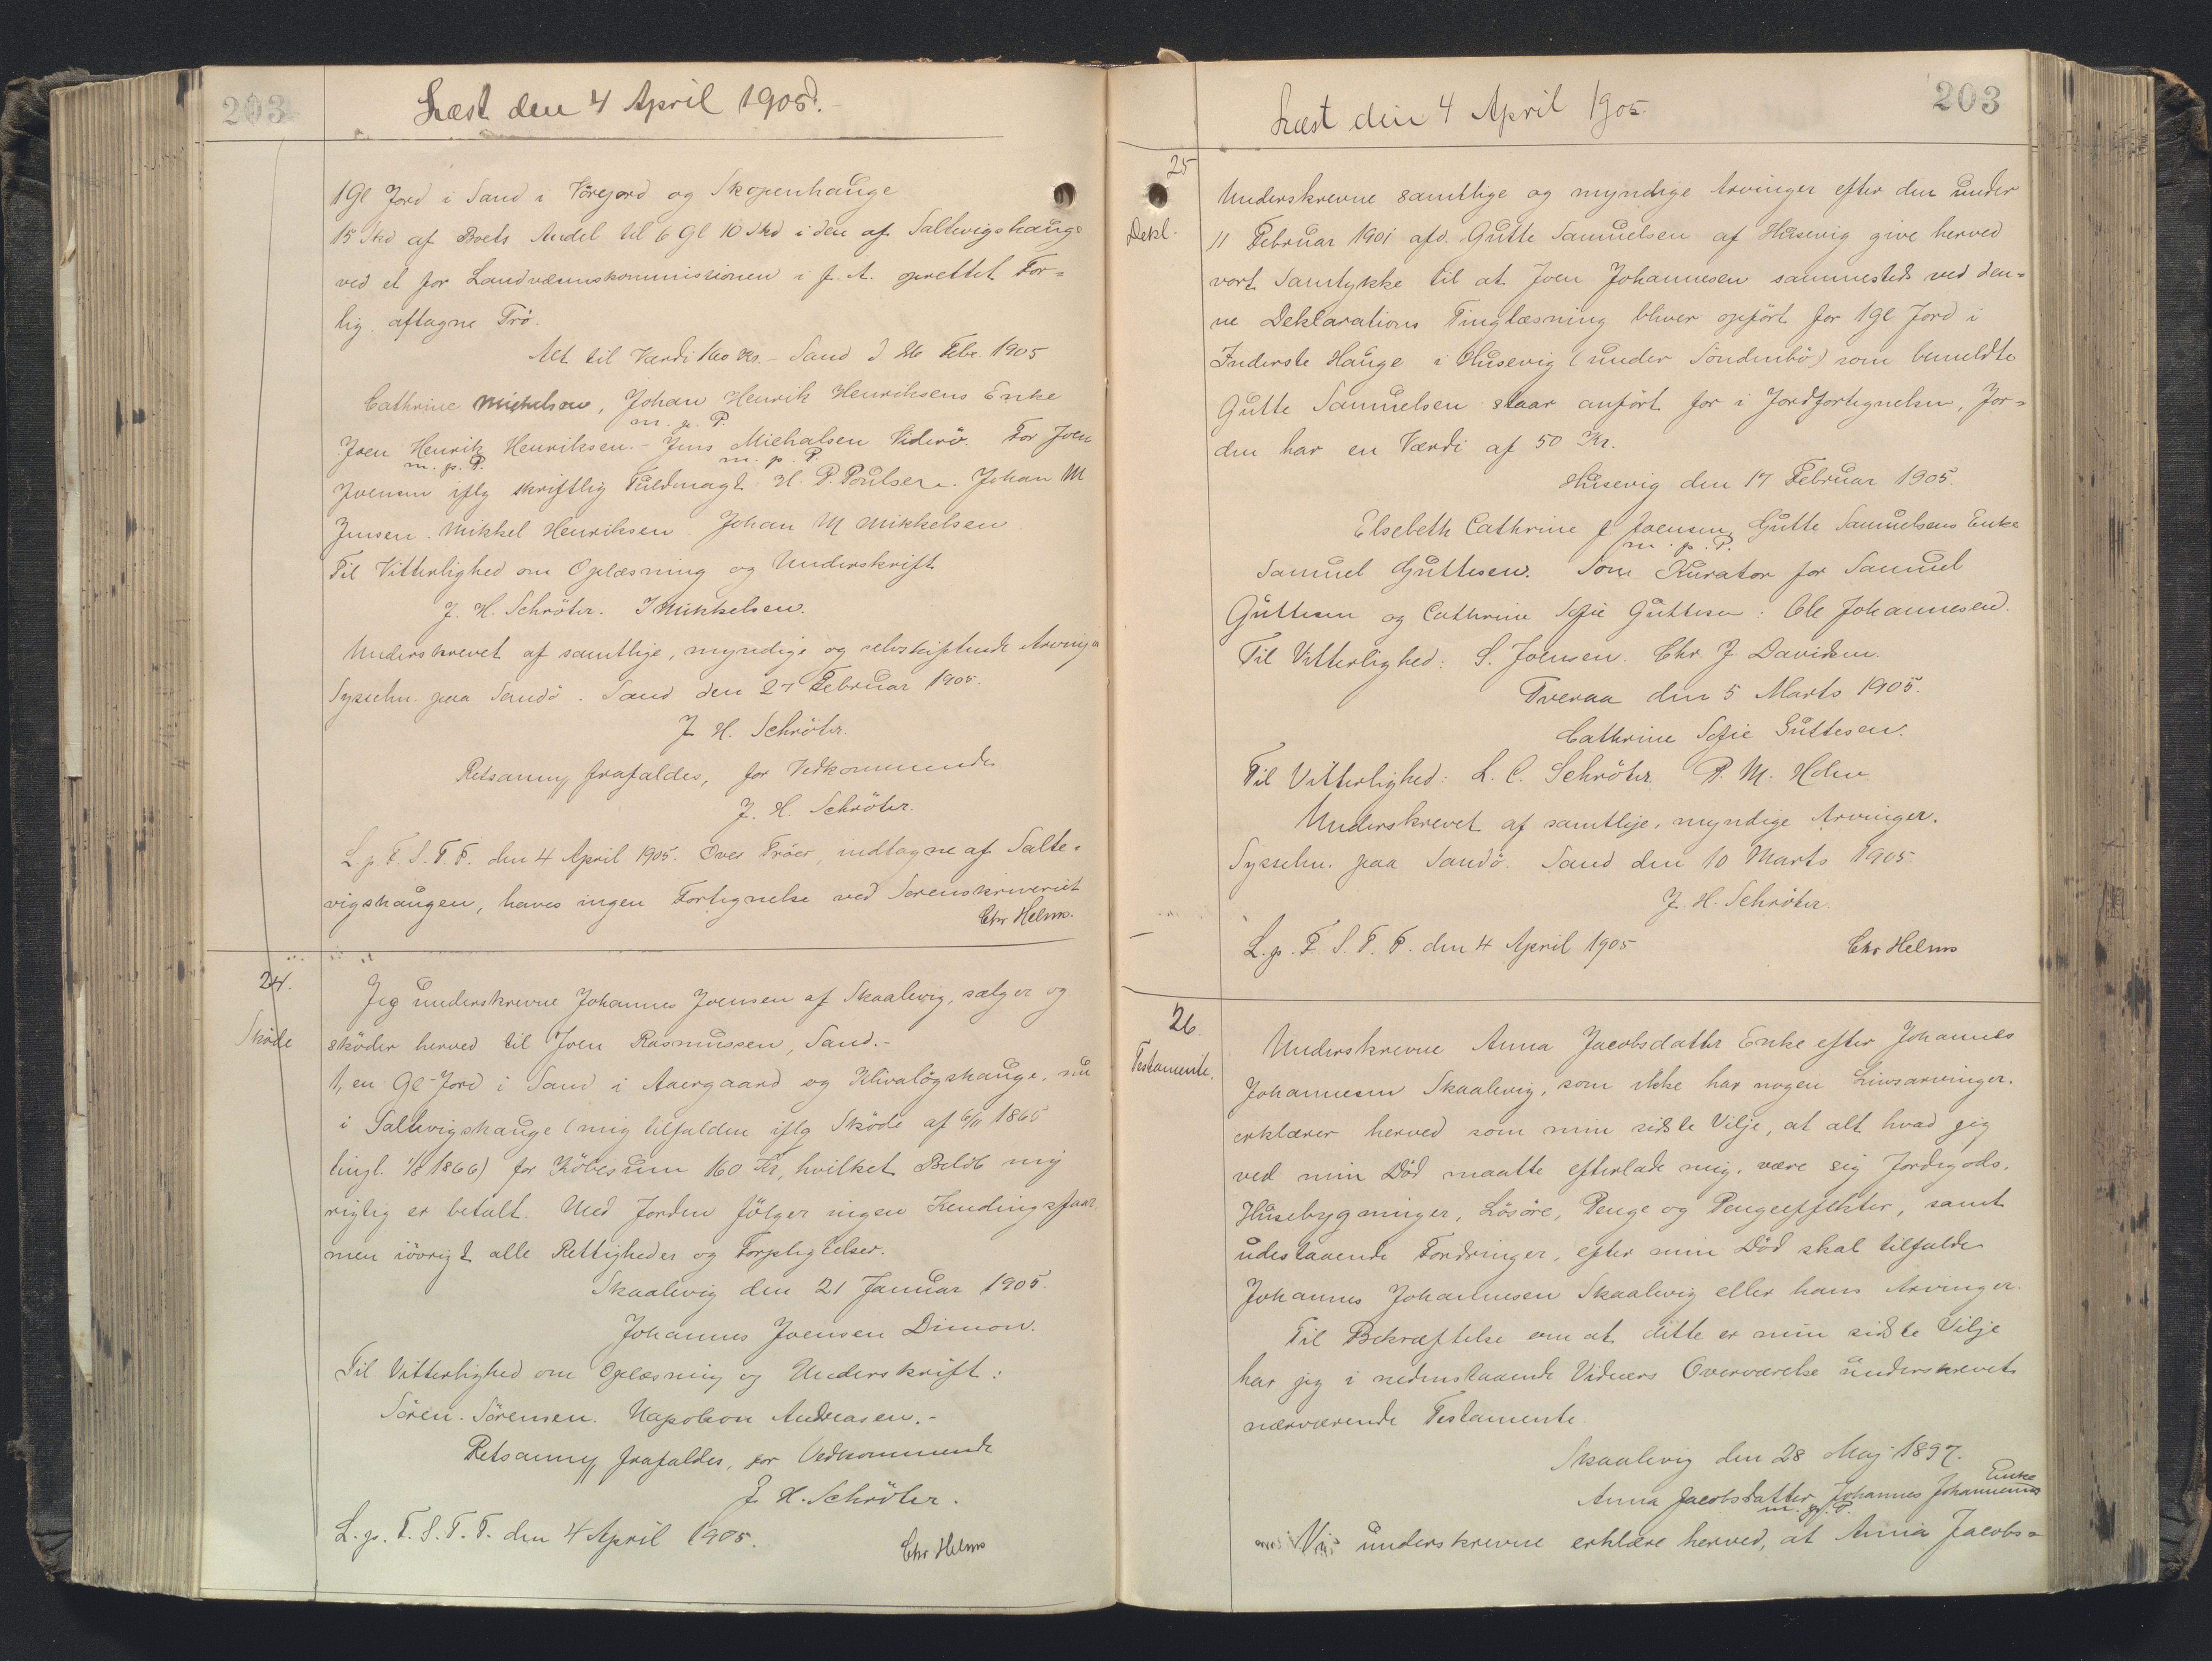 203
Læst den 4 April 1905.
1 Gl Jord i Sand i Vörgord og Skopenhauge
15 Skd af Boets Andel til 6 Gl 10 Skd i den af Saltevigshauge
ved et for Landvæsenskommissionen i f. A. oprettet For=
lig aftagne Trö.
Alt til Værdi 1600 Kr. - Sand d 26 Febr. 1905
Cathrine Michelsen, Johan Henrik Henriksens Enke
m. p. P.
Joen Henrik Henriksen. - Jens Michalsen Viderö. For Joen
m. p. P. m. p. P.
Joensen iflg skriftlig Fuldmagt: H. P. Poulsen. Johan M
Jensen. Mikkel Henriksen Johan M Mikkelsen
Til Vitterlighed om Oplæsning og Underskrift
J. H. Schröter. J Mikkelsen.
Underskrevet af samtlige, myndige og selvskiftende Arvinger
Sysselm. paa Sandö. Sand den 27 Februar 1905.
J. H. Schröter.
Retsanmg frafaldes, for Vedkommende
J. H. Schröter.
L. p. F. S. T. F. den 4 April 1905. Over Tröer, indtagne af Salte=
vigshaugen, haves ingen Fortegnelse ved Sorenskriveriet
Chr Helms.
24.
Sköde
Jeg underskrevne Johannes Joensen af Skaalevig, sælger og
sköder herved til Joen Rasmussen, Sand.-
1, en Gl-Jord i Sand i Aaergaard og Klivalögshauge, nu
i Saltevigshauge (mig tilfalden iflg Sköde af 6/11 1865
tingl. 1/8 1866) for Köbesum 160 Kr, hvilket Belöb mig
rigtig er betalt. Med Jorden fölger ingen Kendingsfaar,
men iövrigt alle Rettigheder og Forpligtelser.
Skaalevig den 21 Januar 1905.
Johannes Joensen Dimon.
Til Vitterlighed om Oplæsning og Underskrift:
Sören Sörensen. Napoleon Andreasen.-
Retsanmg frafaldes, for Vedkommende
J. H. Schröter.
L. p. F. S. T. F. den 4 April 1905.
Chr Helms
203
Læst den 4 April 1905.
25
Dekl.
Underskrevne samtlige og myndige Arvinger efter den under
11 Februar 1901 afd. Gutte Samuelsen af Husevig give herved
vort Samtykke til at Joen Johannesen sammesteds ved den=
ne Deklarations Tinglæsning bliver opfört for 1 Gl Jord i
Inderste Hauge i Husevig (under Söndenbö) som bemeldte
Gutte Samuelsen staar anfört for i Jordfortegnelsen, Jor=
den har en Værdi af 50 Kr.
Husevig den 17 Februar 1905.
Elsebeth Cathrine f Joensen, Gutte Samuelsens Enke
m. p. P.
Samuel Guttesen. Som Kurator for Samuel
Guttesen og Cathrine Sofie Guttesen: Ole Johannesen.
Til Vitterlighed: S. Joensen. Chr. J. Davidsen.
Tveraa den 5 Marts 1905.
Cathrine Sofie Guttesen.
Til Vitterlighed: L. C. Schröter. P. M. Holm.
Underskrevet af samtlige, myndige Arvinger.
Sysselm. paa Sandö. Sand den 10 Marts 1905.
J. H. Schröter.
L. p. F. S. T. F. den 4 April 1905
Chr Helms
26.
Testamente.
Underskrevne Anna Jacobsdatter Enke efter Johannes
Johannesen Skaalevig, som ikke har nogen Livsarvinger.
erklærer herved som min sidste Vilje, at alt hvad jeg
ved min Död maatte efterlade mig, være sig Jordegods,
Husebygninger, Lösöre, Penge og Pengeeffekter, samt
udestaaende Fordringer, efter min Död skal tilfalde
Johannes Johannesen Skaalevig eller hans Arvinger.
Til Bekræftelse om at dette er min sidste Vilje
har jeg i nedenstaaende Vidners Overværelse underskrevet
nærværende Testamente.
Skaalevig den 28 Maj 1897.
Anna Jacobsdatter Johannes Johannesens Enke
m. p. P.
Vi underskrevne erklære herved, at Anna Jacobs=